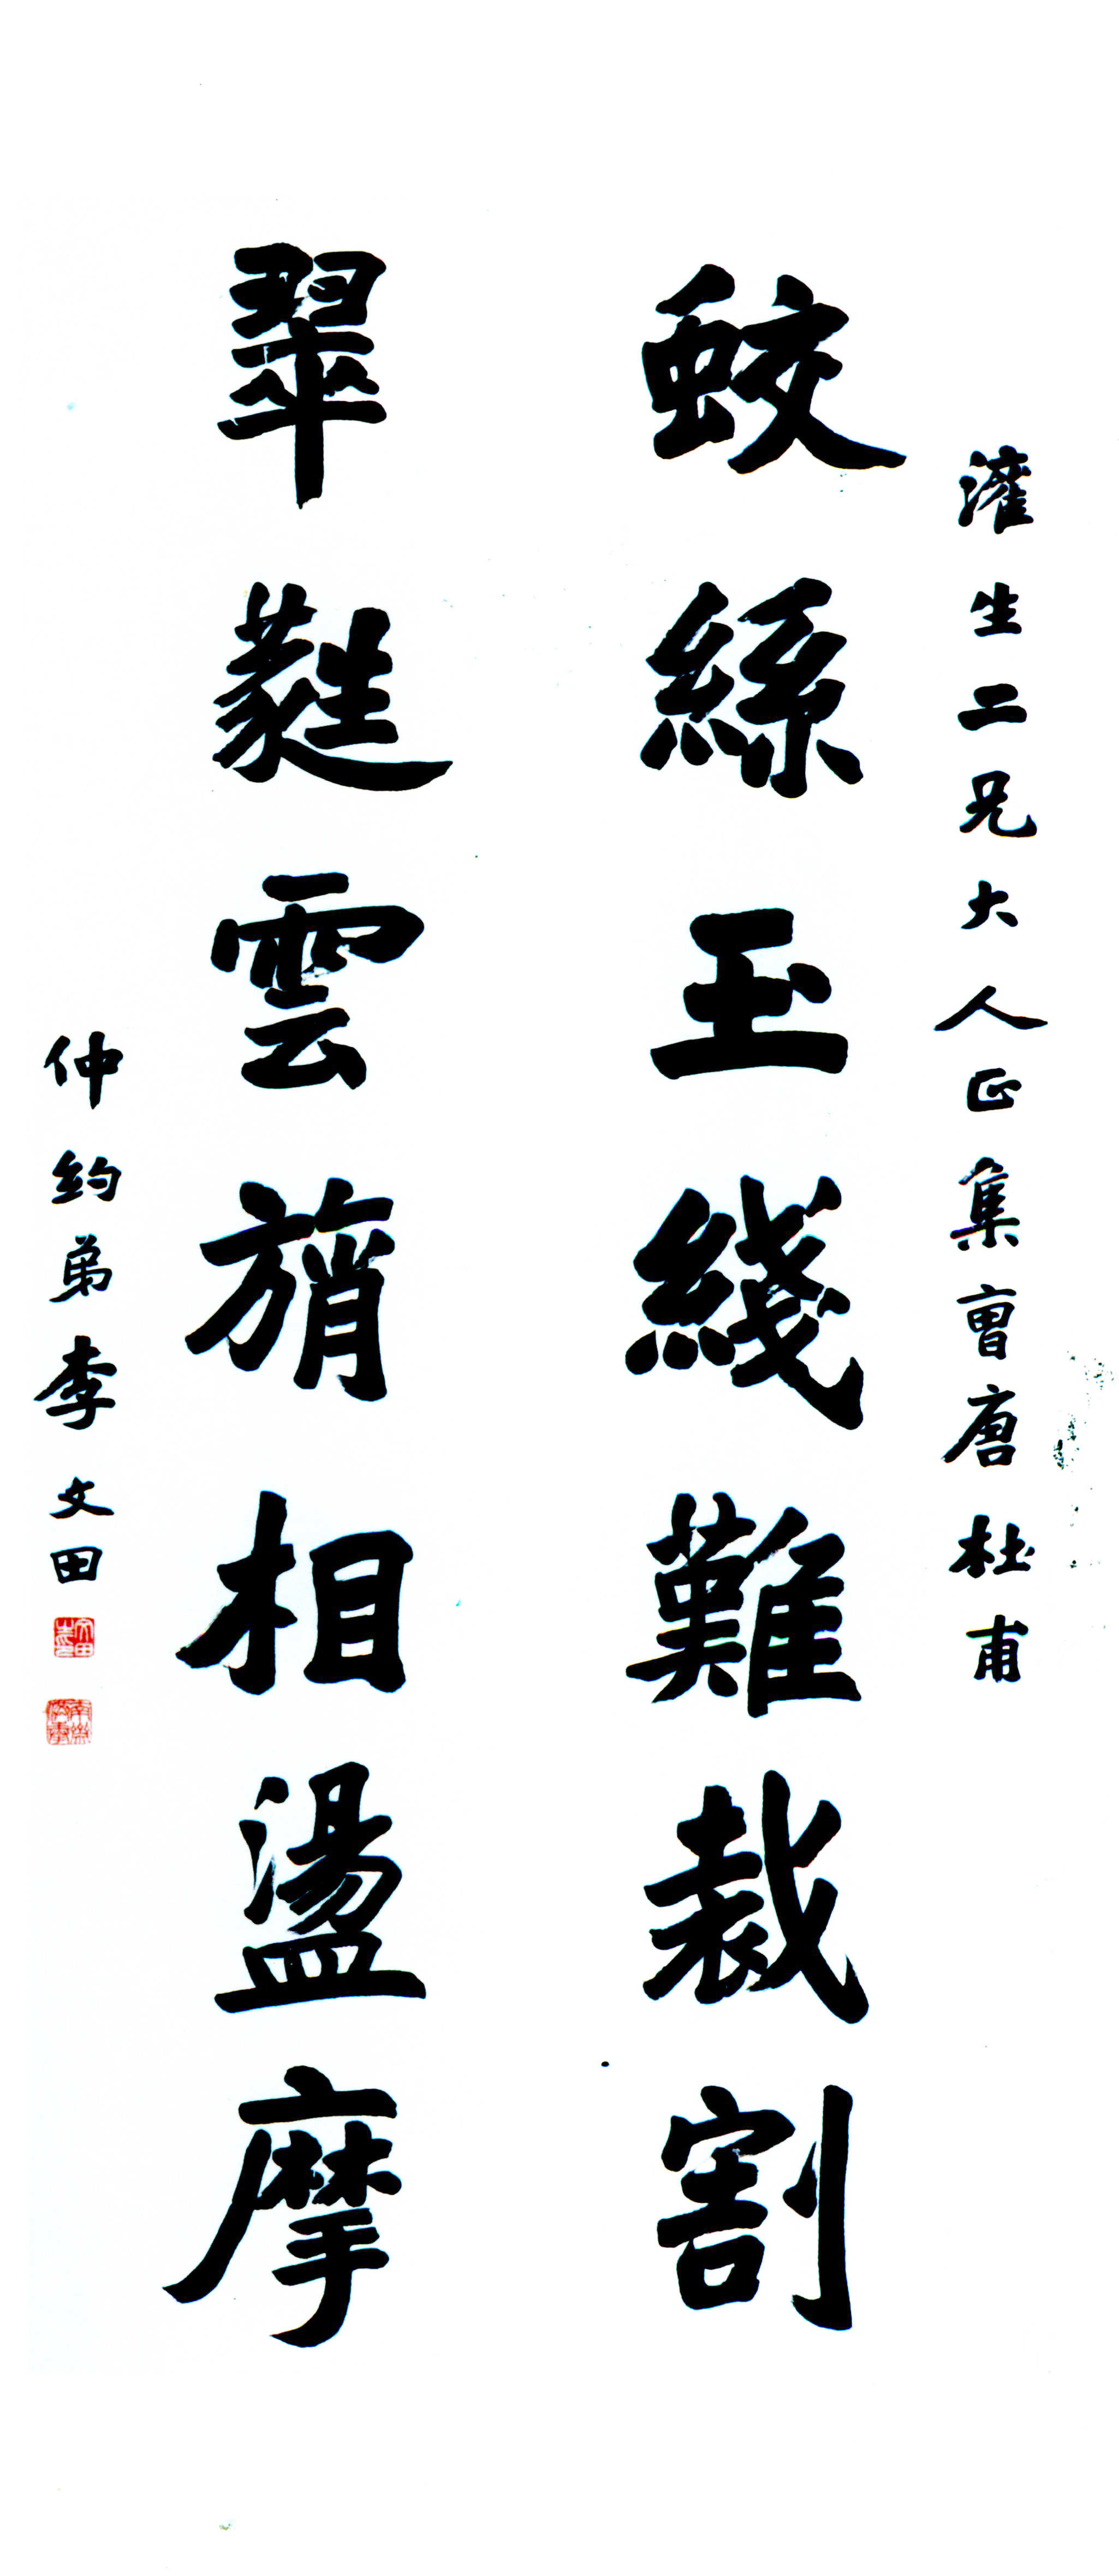 灌生二兄大人正集曺唐杜甫
蛟絲玉綫難裁割
翠蕤雲旓相盪摩
仲約弟李文田